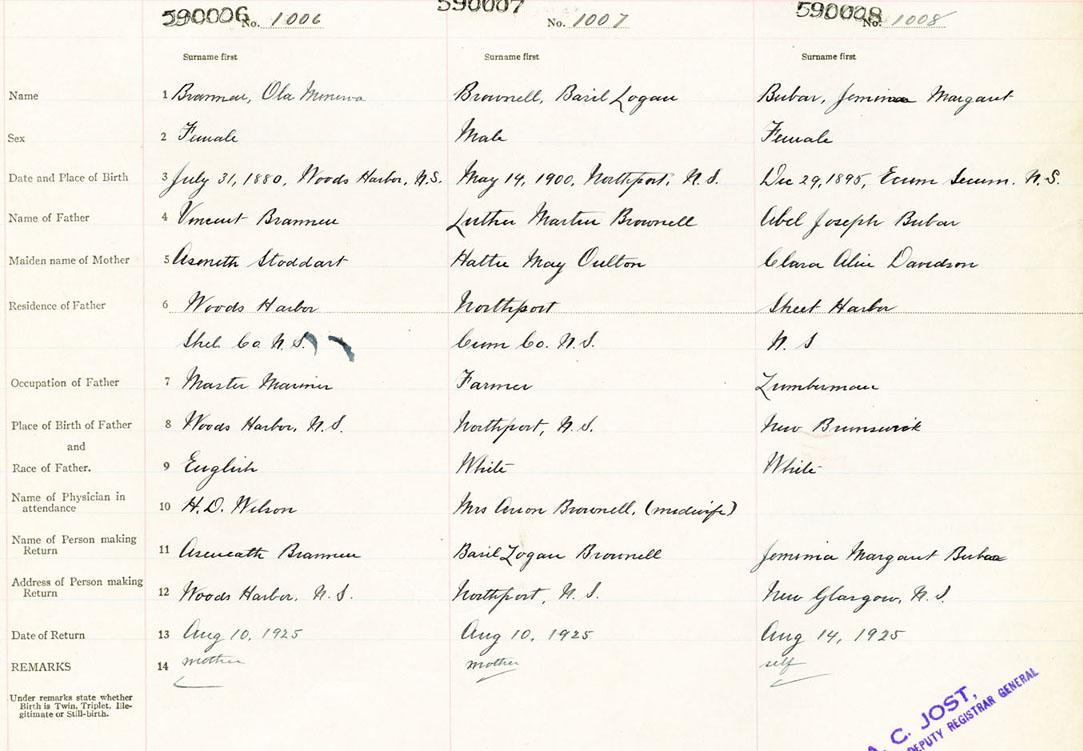 590006 No. 1006 590007 No. 1007 590008 No. 1008
Surname first Surname first Surname first
Name 1 Brannen, Ola Minerva Brownell, Basil Logan Bubar, Jemima Margaret
Sex 2 Female Male Female
Date and Place of Birth 3 July 31, 1880, Woods Harbor, N.S. May 14, 1900, Northport, N.S. Dec 29, 1895, Ecum Secum. N.S.
Name of Father 4 Vincent Brannen Luther Martin Brownell Abel Joseph Bubar
Maiden name of Mother 5 Asenath Stoddart Hattie May Oulton Clara Alice Davidson
Residence of Father 6 Woods Harbor Northport Sheet Harbor
Shel. Co N.S. Cum Co. N.S. N.S
Occupation of Father 7 Master Mariner Farmer Lumberman
Place of Birth of Father 8 Woods Harbor, N.S. Northport, N.S. New Brunswick
and
Race of Father. 9 English White White
Name of Physician in
attendance 10 H.D. Wilson Mrs Brownell, (midwife)
Name of Person making
Return 11 Aseneath Brannen Basil Logan Brownell Jemima Margaret Bubar
Address of Person making
Return 12 Woods Harbor, N.S. Northport, N.S. New Glasgow, N.S.
Date of Return 13 Aug 10, 1925 Aug 10, 1925 Aug 14, 1925
REMARKS 14 mother mother self
Under remarks state whether
Birth is Twin, Triplet, Ille-
gitimate or Still-birth.
A. C. JOST,
DEPUTY REGISTRAR GENERAL